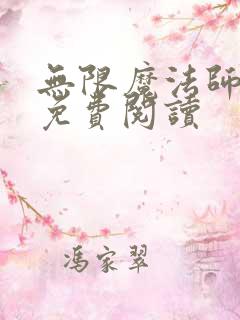 無限魔法師
免費閱讀
馮家翠